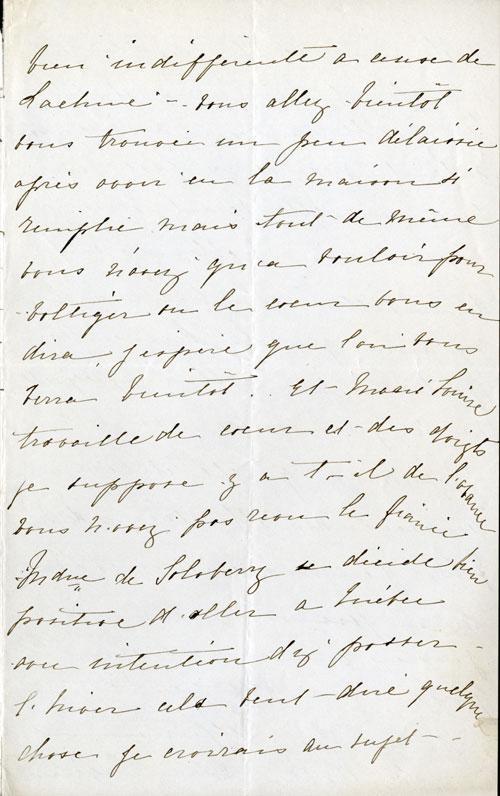 bien indifférente a cause de
Lachine - vous allez bientôt
vous trouvée un peu délaissée
après avoir eu la maison si
remplie mais tout-de même
vous n'avez qu'a vouloir pour
voltiger ou le coeur vous en
dira, j'espère que l'on vous
verra bientôt. Et Marie Louise
travaille de coeur et des doigts
je suppose y a t-il de l'
vous n'avez pas revu le fiancé
Mdme de Salaberry se décide bien
positive d'aller a Québec
avec intention d'y passer
l'hiver cela veut-dire quelque
chose je croirais au sujet -